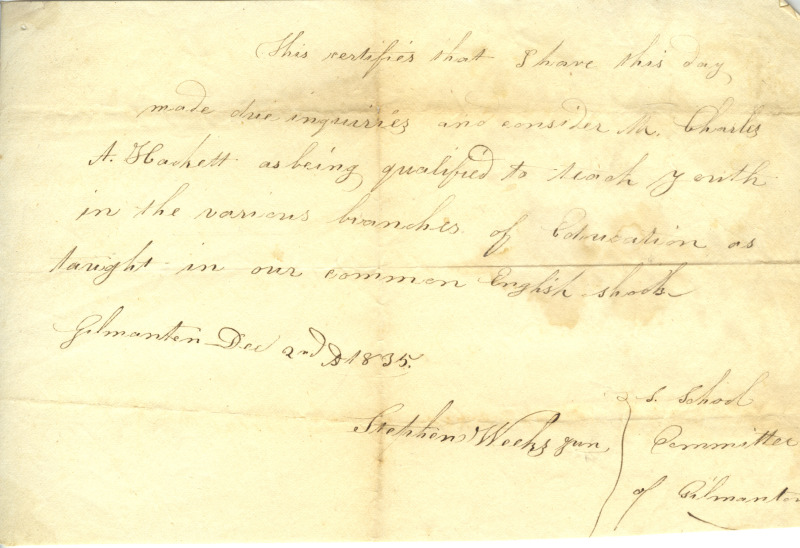 This certifies that I have this day
made due inquiries and consider Mr. Charles
A. Hackett as being qualified to teach youth
in the various branches of Education as
taught in our common English shools
Gilmanton Dec 2nd 1835.
Stephen Weeks jun
S. School
Committee
of Gilmanton